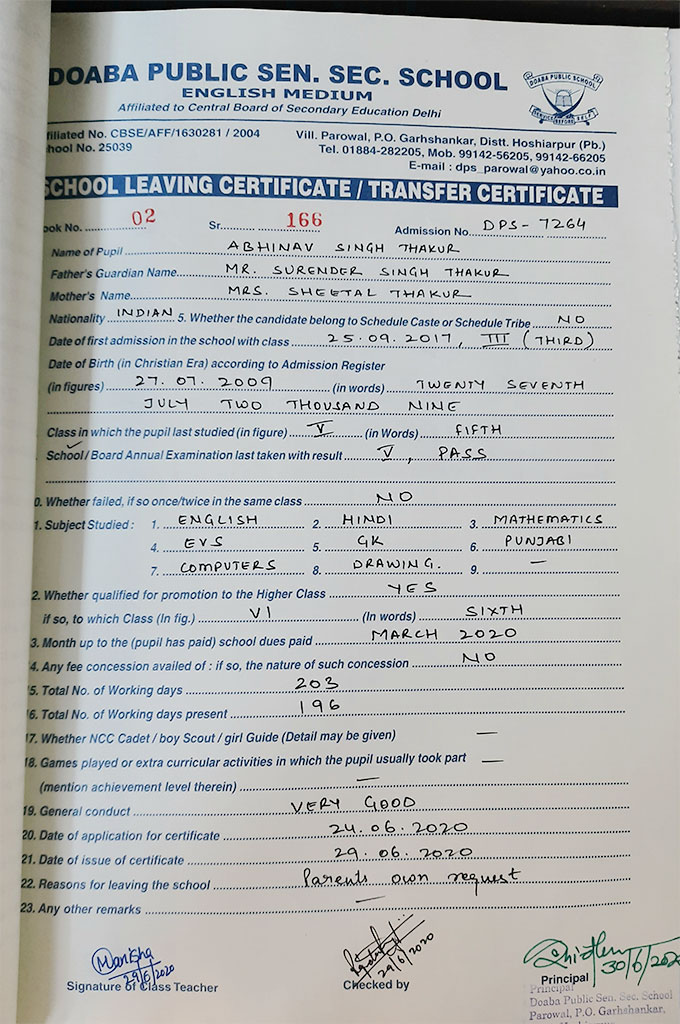 DOABA PUBLIC SEN. SEC. SCHOOL
ENGLISH MEDIUM
Affiliated to Central Board of Secondary Education Delhi
DOABA PUBLIC SCHOOL
SERVICE BEFORE SELF
filiated No. CBSE/AFF/1630281 / 2004
hool No. 25039
Vill. Parowal, P.O. Garhshankar, Distt. Hoshiarpur (Pb.)
Tel. 01884-282205, Mob. 99142-56205, 99142-66205
E-mail : dps_parowal@yahoo.co.in
SCHOOL LEAVING CERTIFICATE / TRANSFER CERTIFICATE
ook No. 02 Sr. 166 Admission No. DPS-7264
Name of Pupil ABHINAV SINGH THAKUR
Father's Guardian Name MR. SURENDER SINGH THAKUR
Mother's Name MRS. SHEETAL THAKUR
Nationality INDIAN 5. Whether the candidate belong to Schedule Caste or Schedule Tribe NO
Date of first admission in the school with class 25.09.2017, III (THIRD)
Date of Birth (in Christian Era) according to Admission Register
(in figures) 27.07.2009 (in words) TWENTY SEVENTH
JULY TWO THOUSAND NINE
Class in which the pupil last studied (in figure) V (in Words) FIFTH
School / Board Annual Examination last taken with result V, PASS
0. Whether failed, if so once/twice in the same class NO
1. Subject Studied : 1. ENGLISH 2. HINDI 3. MATHEMATICS
4. EVS 5. GK 6. PUNJABI
7. COMPUTERS 8. DRAWING. 9. —
2. Whether qualified for promotion to the Higher Class YES
if so, to which Class (In fig.) VI (In words) SIXTH
3. Month up to the (pupil has paid) school dues paid MARCH 2020
4. Any fee concession availed of : if so, the nature of such concession NO
5. Total No. of Working days 203
6. Total No. of Working days present 196
17. Whether NCC Cadet / boy Scout / girl Guide (Detail may be given) —
18. Games played or extra curricular activities in which the pupil usually took part —
(mention achievement level therein) —
19. General conduct VERY GOOD
20. Date of application for certificate 24.06.2020
21. Date of issue of certificate 29.06.2020
22. Reasons for leaving the school Parents own request
23. Any other remarks —
Manisha
29/6/2020
29/6/2020
30/6/2020
Signature of Class Teacher
Checked by
Principal
Principal
Doaba Public Sen. Sec. School
Parowal, P.O. Garhshankar,